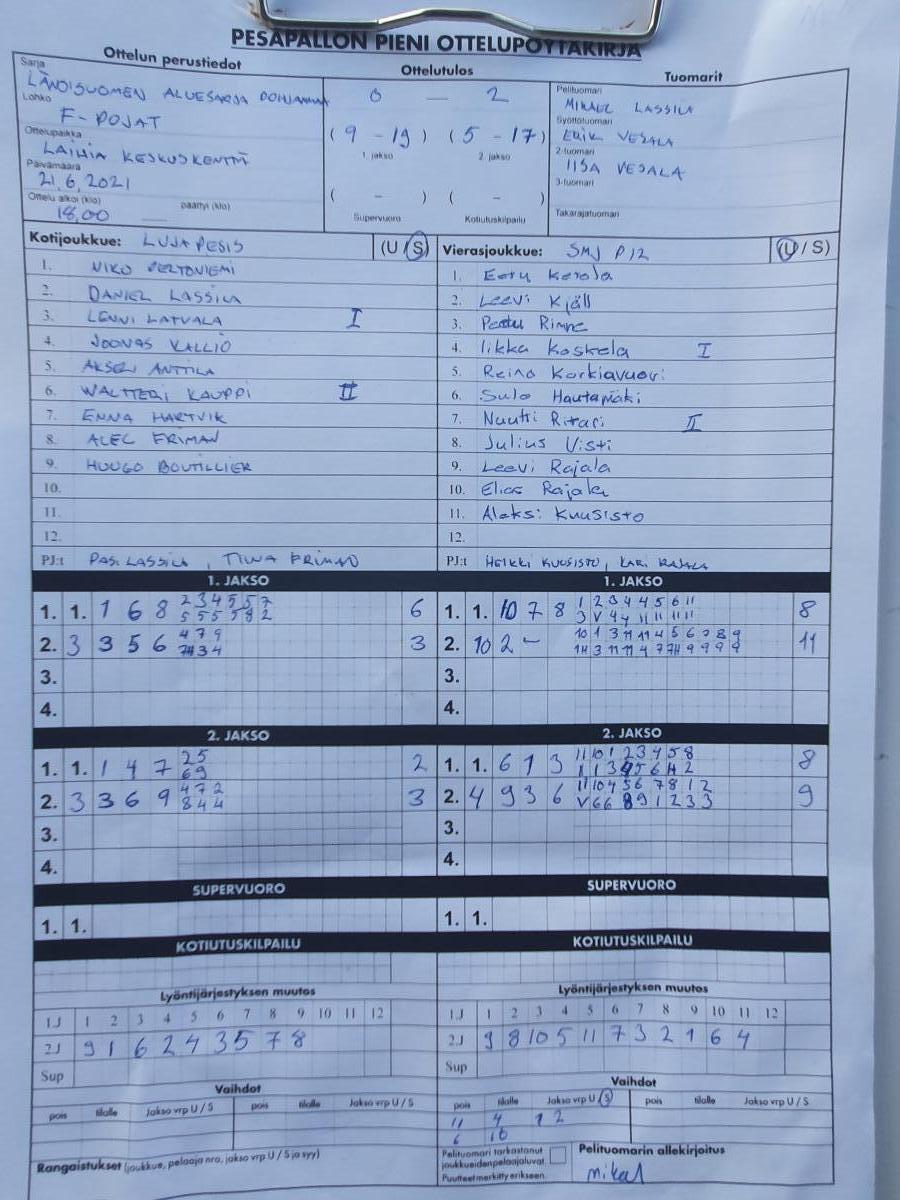 PESÄPALLON PIENI OTTELUPÖYTÄKIRJA
Ottelun perustiedot
Ottelutulos
Tuomarit
Sarja
LÄNSISUOMEN ALUESARJA POHJANMAA
Lohko
F-POJAT
Ottelupaikka
LAIHIA KESKUSKENTTÄ
Päivämäärä
21.6.2021
Ottelu alkoi (klo) päättyi (klo)
18.00
0 — 2
(9 - 19) (5 - 17)
1. jakso 2. jakso
( - ) ( - )
Supervuoro Kotiutuskilpailu
Pelituomari
MIKAEL LASSILA
Syöttötuomari
ERIK VESALA
2-tuomari
IISA VESALA
3-tuomari
Takarajatuomari
Kotijoukkue: LUJA PESIS (U/S)
1. NIKO PELTONIEMI
2. DANIEL LASSILA
3. LENNI LATVALA I
4. JOONAS KALLIO
5. AKSELI ANTTILA
6. WALTTERI KAUPPI II
7. ENNA HARTVIK
8. ALEC FRIMAN
9. HUUGO BOUTILLIER
10.
11.
12.
PJ:t PASI LASSILA, TIINA FRIMAN
Vierasjoukkue: SMJ P12 (U/S)
1. Eetu Kerola
2. Leevi Kjäll
3. Peetu Rinne
4. Iikka Koskela I
5. Reino Korkiavuori
6. Sulo Hautamäki
7. Nuutti Ritari II
8. Julius Visti
9. Leevi Rajala
10. Elias Rajala
11. Aleksi Kuusisto
12.
PJ:t HEIKKI KUUSISTO, KARI RAJALA
1. JAKSO
1. 1. 1 6 8 2 3 4 5 5 7 6
2. 3 3 5 6 4 7 9 3
3.
4.
1. JAKSO
1. 1. 10 7 8 1 2 3 4 4 5 6 11 8
2. 10 2 - 10 1 3 11 11 4 5 6 7 8 9 11
3.
4.
2. JAKSO
1. 1. 1 4 7 2 5 2
6 9
2. 3 3 6 9 4 7 2 3
8 4 4
3.
4.
2. JAKSO
1. 1. 6 1 3 11 10 1 2 3 4 5 8 8
2. 4 9 3 6 11 10 4 5 6 7 8 1 2 9
3.
4.
SUPERVUORO
1. 1.
SUPERVUORO
1. 1.
KOTIUTUSKILPAILU
KOTIUTUSKILPAILU
Lyöntijärjestyksen muutos
1J 1 2 3 4 5 6 7 8 9 10 11 12
2J 9 1 6 2 4 3 5 7 8
Sup
Lyöntijärjestyksen muutos
1J 1 2 3 4 5 6 7 8 9 10 11 12
2J 9 8 10 5 11 7 3 2 1 6 4
Sup
Vaihdot
pois tilalle Jakso vrp U / S pois tilalle Jakso vrp U / S
Vaihdot
pois tilalle Jakso vrp U / S pois tilalle Jakso vrp U / S
11 4 1 2
6 10
Rangaistukset (joukkue, pelaaja nro, jakso vrp U / S ja syy)
Pelituomari tarkastanut
joukkueiden pelaajaluvat.
Puutteet merkitty erikseen.
Pelituomarin allekirjoitus